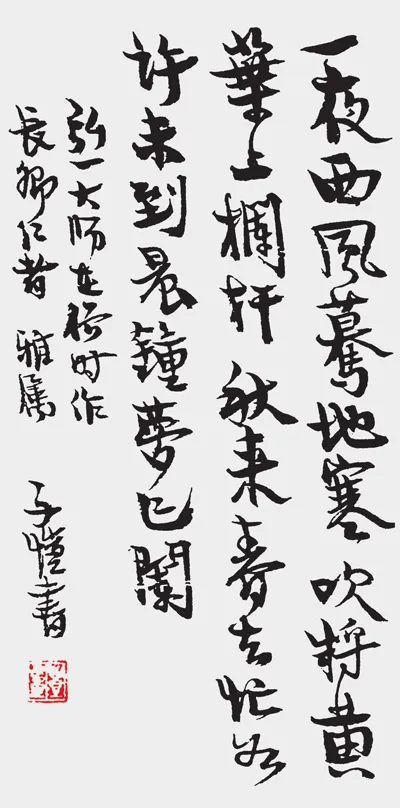 一夜西風驀地寒吹將黃
葉上欄杆秋來春去忙如
許未到晨鐘夢已闌
弘一大師在俗時作
長卿仁者 雅屬
子愷書